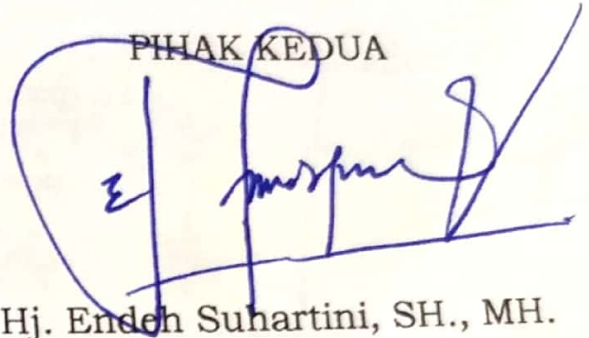 PIHAK KEDUA
Hj. Endeh Suhartini, SH., MH.